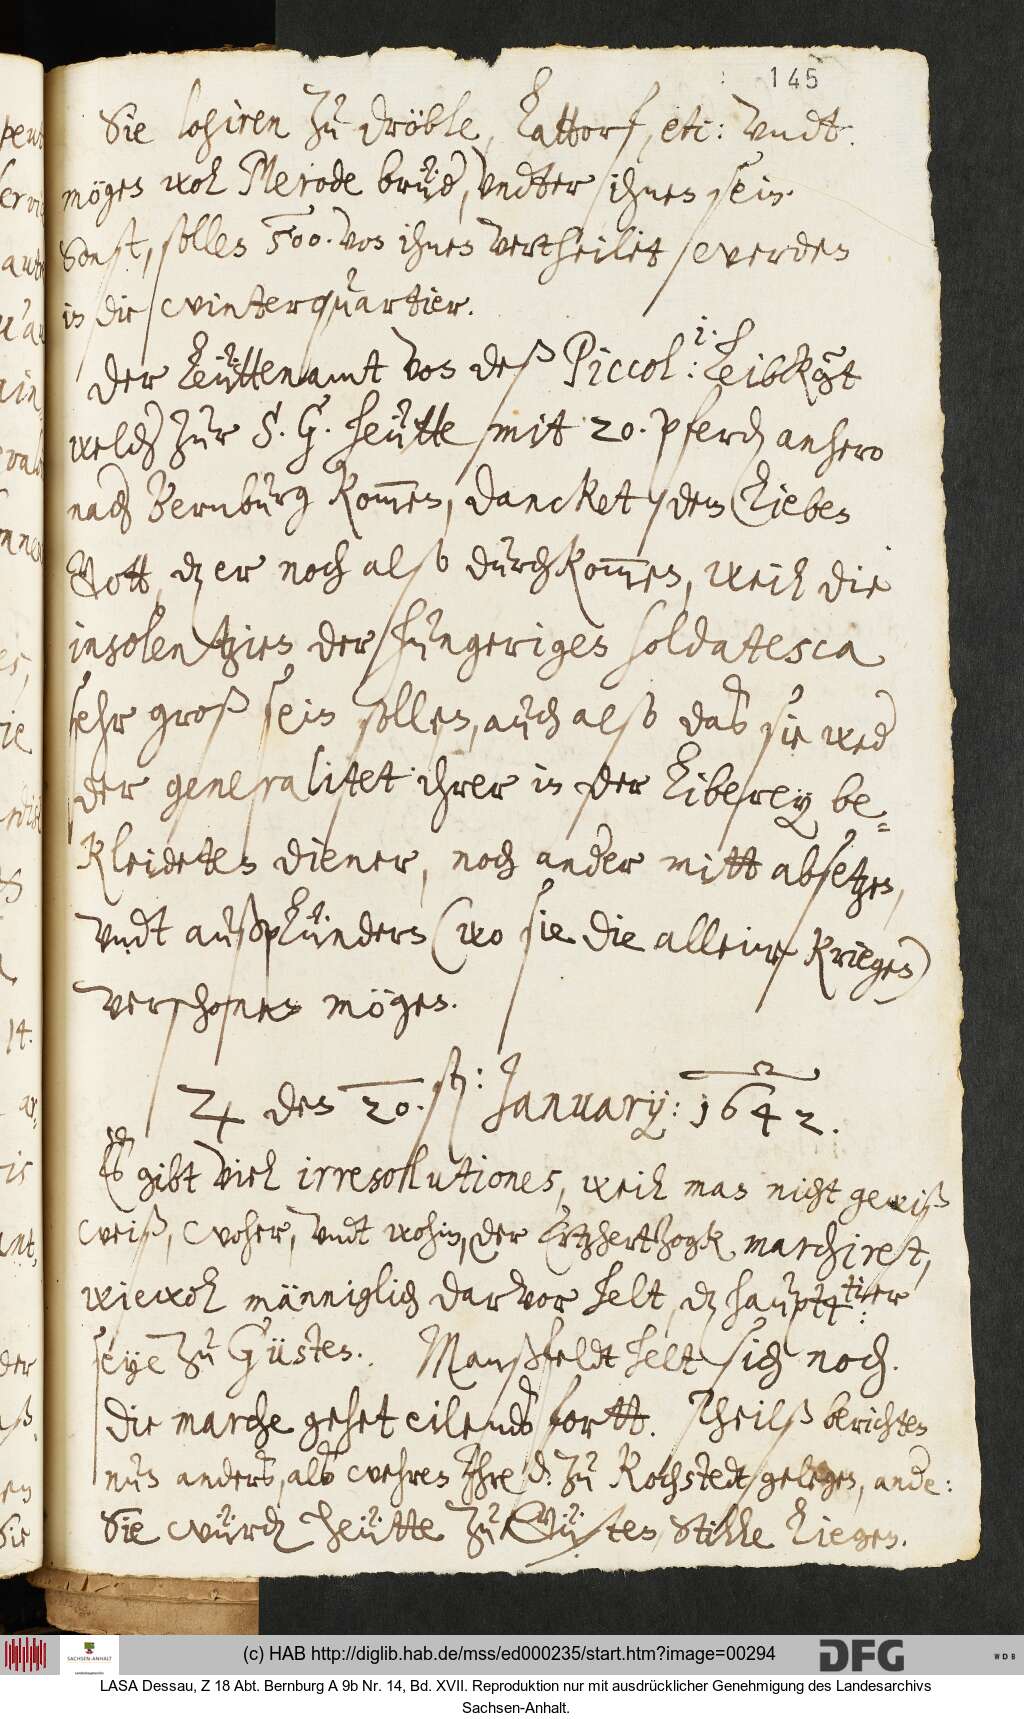 145
Sie losiren zu dröble, Lattorf, etc: vndt
mögen wol Merode brüd, vndter ihnen sein.
Sonst, sollen 500. von ihnen vertheilet werden
in die winterquartier.
Der Leüttenamt von deß Piccol: i. Leibkgt
welch zur S. G. heütte mit 20. pferd anhero
nach Bernburg kommen, dancket dem Lieben
Gott, dz er noch also durchkommen, weil die
insolentzien der hungerigen soldatesca
sehr groß sein sollen, auch also das sie wed
der generalitet ihrer in der Liberey be¬
kleideten diener, noch ander mitt absetzen,
vndt außplündern (wo sie die allein kriegen)
verschonen mögen.
♃ den 20. sten: January: 1642.
Es gibt viel irresollutiones, weil man nicht gewiß
weiß, woher, vndt wohin, der Ertzhertzogk marchiret,
wiewol männiglich darvor helt, dz hauptt: tier
seye zu Güsten. Manßfeldt helt sich noch.
Die marche gehet eilends fortt. Theilß berichten
nun anders, alß wehren Ihre d. zu Kochstedt gelegen, ande:
Sie würd heütte zu Güsten stille liegen.
(c) HAB http://diglib.hab.de/mss/ed000235/start.htm?image=00294
SACHSEN-ANHALT
DFG
WDB
LASA Dessau, Z 18 Abt. Bernburg A 9b Nr. 14, Bd. XVII. Reproduktion nur mit ausdrücklicher Genehmigung des Landesarchivs
Sachsen-Anhalt.